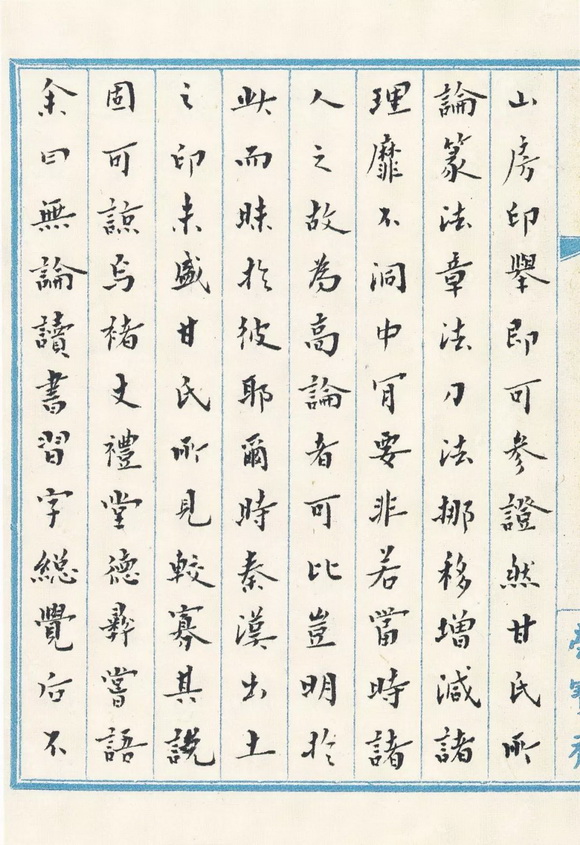 山房印舉即可參證然甘氏所
論篆法章法刀法挪移增減諸
理靡不洞中肎要非若當時諸
人之故為高論者可比豈明於
此而昧於彼耶爾時秦漢出土
之印未盛甘氏所見較寡其說
固可諒焉褚丈禮堂德彝嘗語
余曰無論讀書習字總覺后不